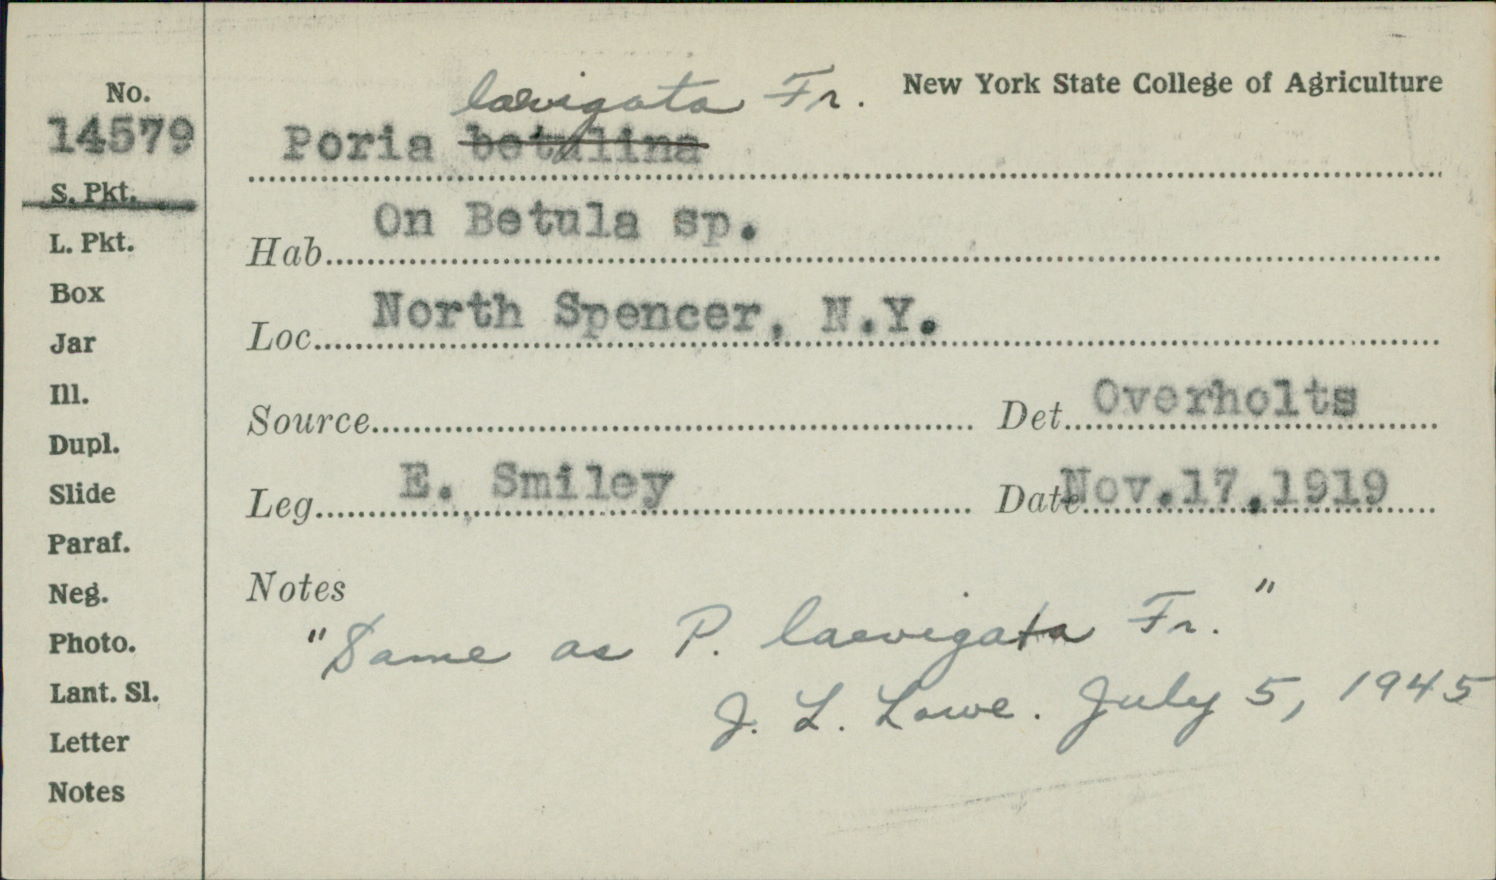 New York State College of Agriculture
No.
14579
S. Pkt.
L. Pkt.
Box
Jar
Ill.
Dupl.
Slide
Paraf.
Neg.
Photo.
Lant. Sl.
Letter
Notes
laevigata Fr.
Poria betulina
Hab. On Betula sp.
Loc. North Spencer, N.Y.
Source Det. Overholts
Leg. E. Smiley Date Nov.17,1919
Notes
"Same as P. laevigata Fr."
J. L. Lowe. July 5, 1945